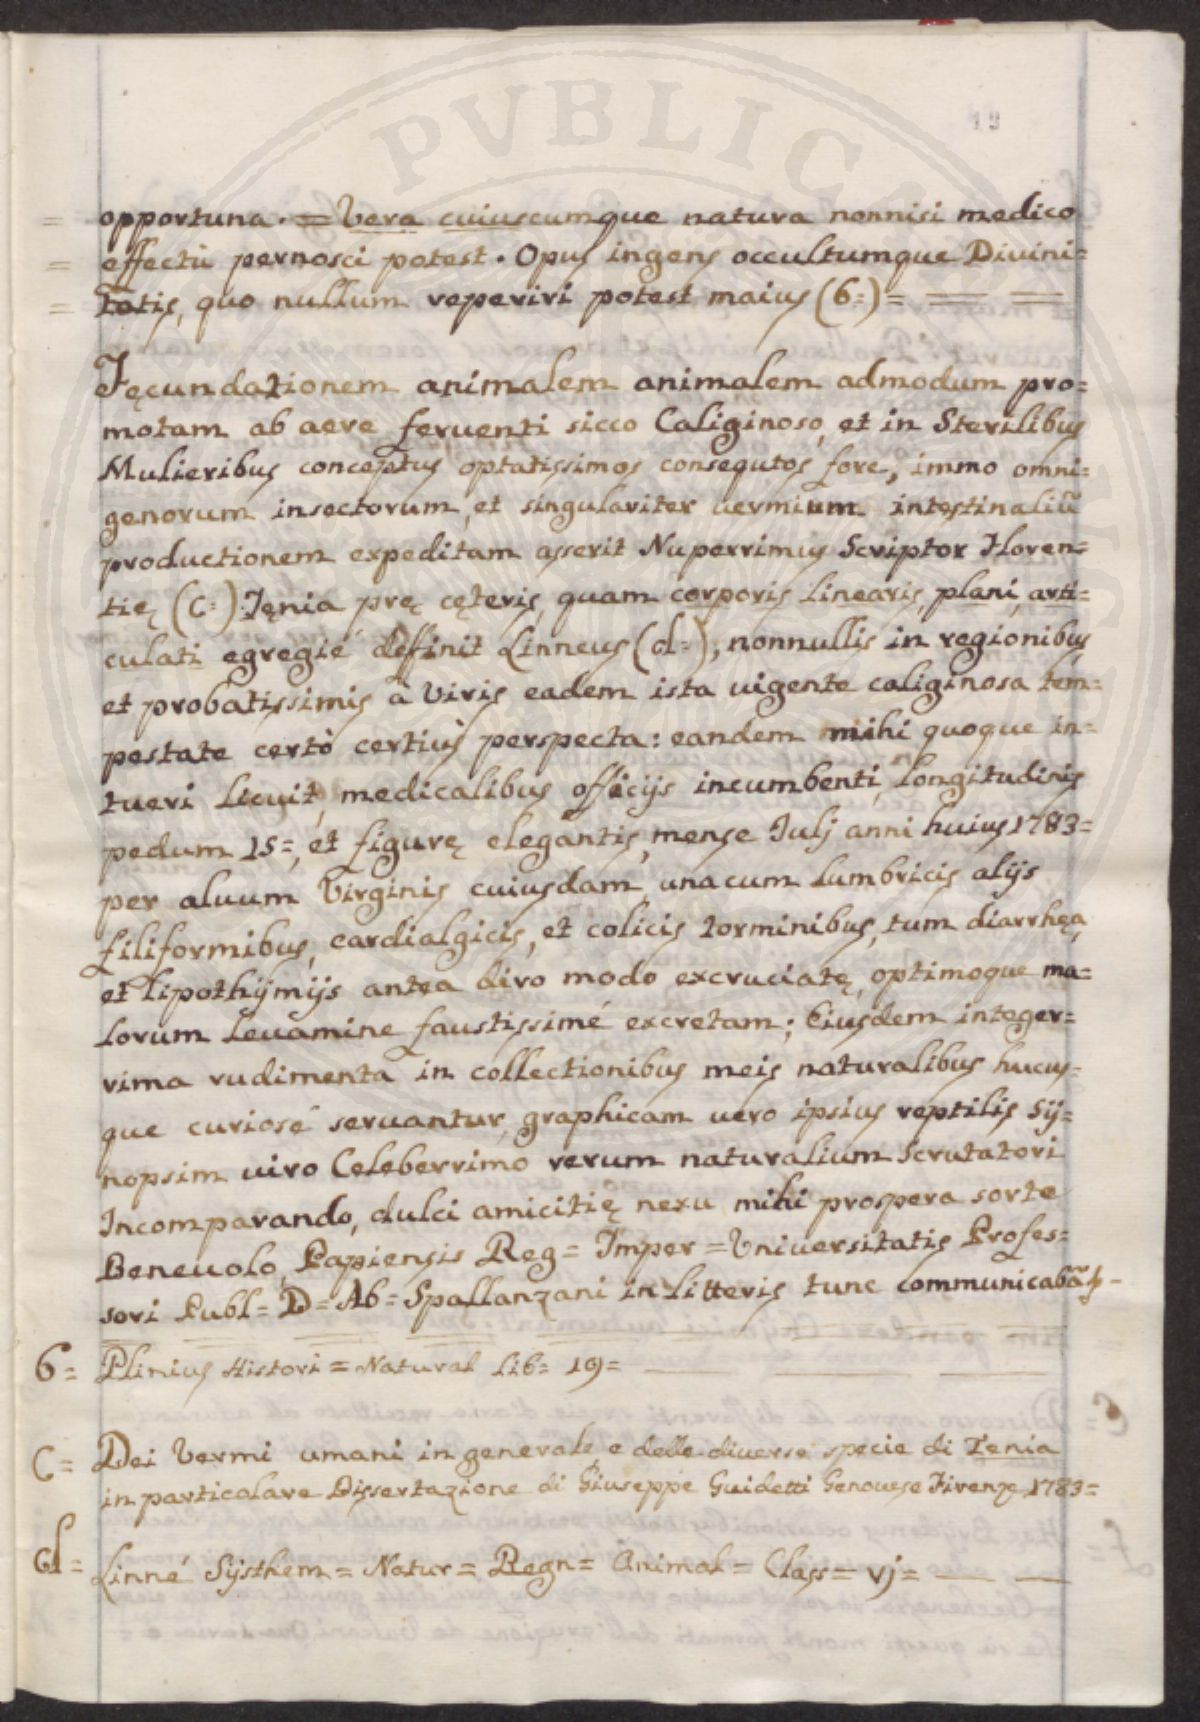 PVBLICA
19
= opportuna. = Vera cuiuscumque natura nonnisi medico
= effectù pernosci potest. Opus ingens occultumque Divini=
= tatis, quo nullum reperiri potest maius (6=) =
Fęcundationem animalem animalem admodum pro=
motam ab aere feruenti sicco Caliginoso, et in Sterilibus
Mulieribus conceptus optatissimos consequtos fore, immo omni=
genorum insectorum, et singulariter uermium intestinaliũ
productionem expeditam asserit Nuperrimus Scriptor Floren=
tię (C=) Tęnia prę cęteris, quam corporis linearis, plani, arti=
culati egregié definit Linneus (d=), nonnullis in regionibus
et probatissimis à Viris eadem ista uigente caliginosa tem=
pestate certò certius perspecta: eandem mihi quoque in=
tueri licuit, medicalibus officijs incumbenti, longitudinis
pedum 15=, et figurę elegantis, mense Julj anni huius 1783=
per aluum Virginis cuiusdam unacum lumbricis alijs
filiformibus, cardialgicis, et colicis torminibus, tum diarrhęa,
et lipothijmijs antea diro modo excruciatę, optimoque ma=
lorum leuamine faustissimé excretam; Eiusdem integer=
rima rudimenta in collectionibus meis naturalibus hucus=
que curiosé seruantur, graphicam uero ipsius reptilis Sij=
nopsim uiro Celeberrimo rerum naturalium Scrutatori
Incomparando, dulci amicitię nexu mihi prospera sorte
Beneuolo, Papiensis Reg= Imper= Vniuersitatis Profes=
sori Publ= D= Ab= Spallanzani in litteris tunc communicabã
6= Plinius Histori= Natural Lib= 19=
C= Dei Vermi umani in generale e delle diverse specie di Tenia
in particolare Dissertazione di Giuseppe Guidetti Genouese Firenze 1783=
d= Linné Sijsthem= Natur= Regn= Animal= Class= vj=